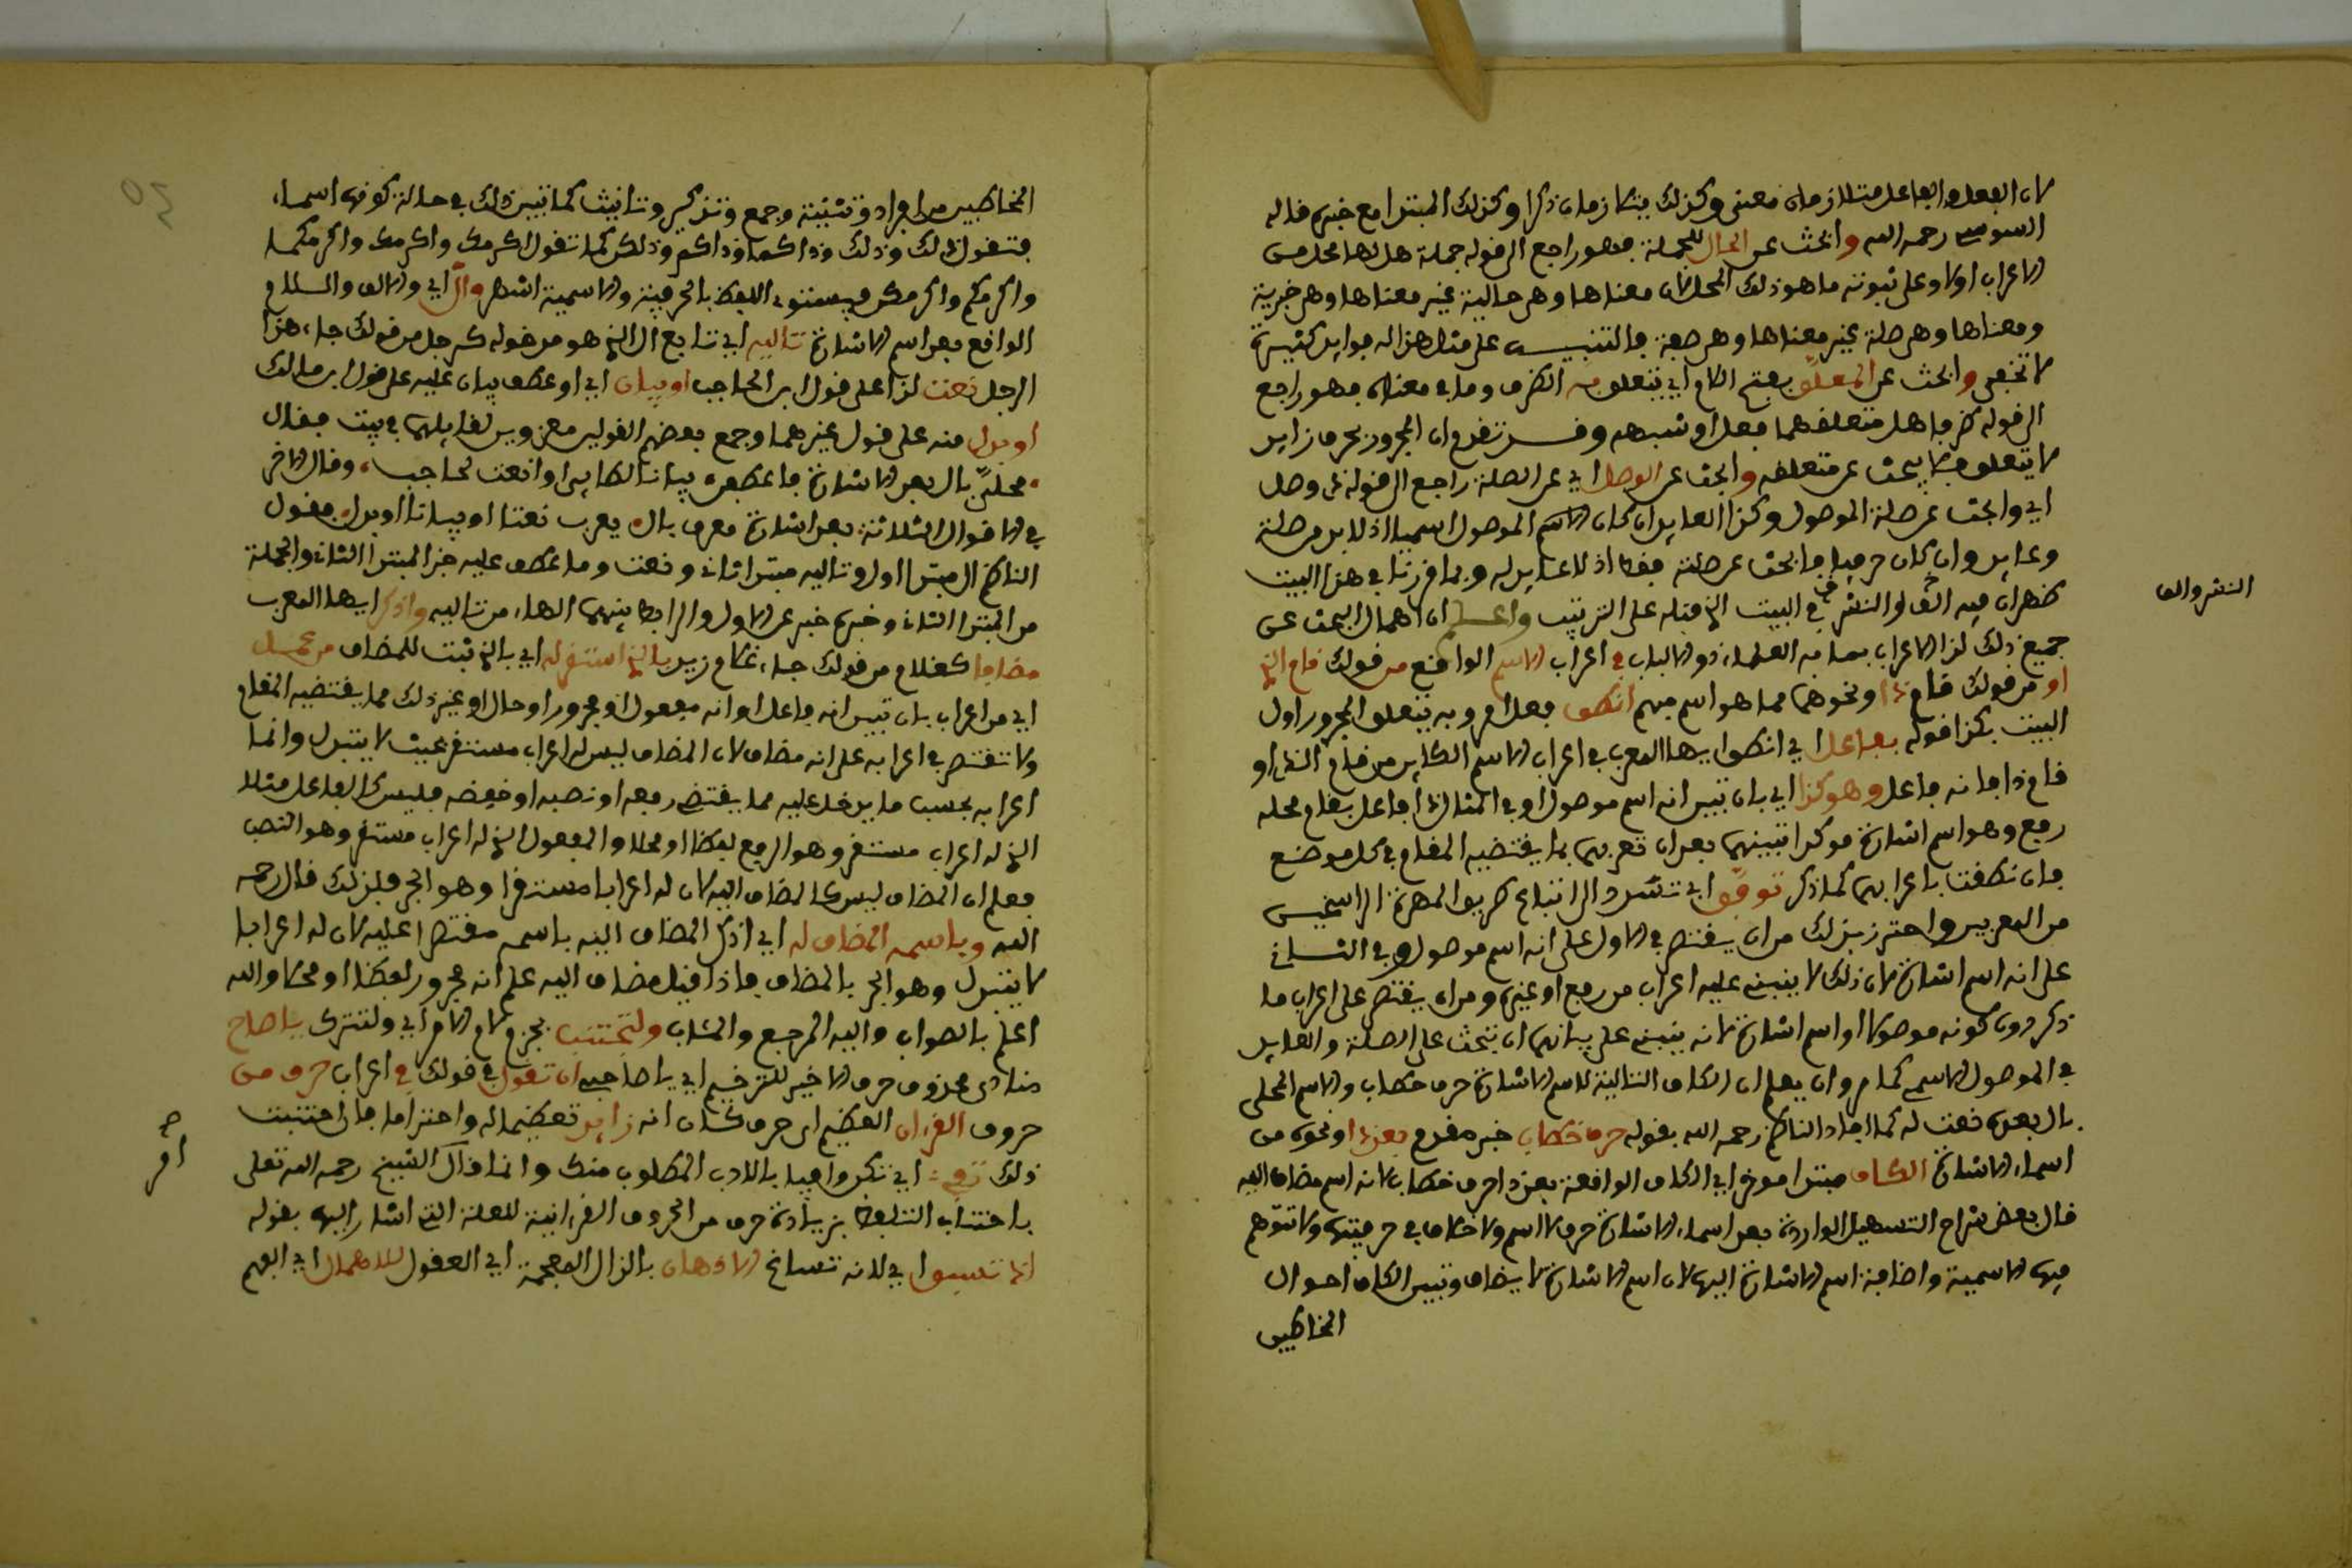 لان الفعل والفاعل متلازمان معنى وكذلك يتلازمان ذكرا وكذلك المبتدا مع خبره قاله
السوسي رحمه الله والبحث عن الحال للجملة فهو راجع الى قوله جملة هل لها محل من
الاعراب اولا وعلى ثبوته ما هو ذلك المحل لان معناها وهي حالية غير معناها وهي خبرية
ومعناها وهي صلة غير معناها وهي صفة فالتنبيه على مثل هذا له فوايد كثيرة
لا تخفى والبحث عن المعلق بفتح اللام اي يتعلق به الظرف وما في معناه فهو راجع
الى قوله ظرفا هل متعلقهما فعل او شبهه وقد تقدم ان المجرور بحرف زايد
لا يتعلق فلا يبحث عن متعلقه والبحث عن الوصل اي عن الصلة راجع الى قوله عن وصل
اي والبحث عن صلة الموصول وكذا العايد ان كان الاسم الموصول اسميا اذ لابد من صلة
وعايد وان كان حرفيا فالبحث عن صلته فقط اذ لا عايد له وبما قررنا في هذا البيت
ظهر ان فيه اللف والنشر في البيت الذي قبله على الترتيب واعلم ان اهمال البحث عن
النشر واللف
جميع ذلك لذا الاعراب مما به العلماء ذو الالباب في اعراب الاسم الواقع من قولك قام الذي
او من قولك قام ذا ونحوهما مما هو اسم مبهم انطق فعل امر وبه يتعلق المجرور اول
البيت بكذا قوله بفاعل اي انطق ايها المعرب في اعراب الاسم الكاين من قام الذي او
قام ذا فانه فاعل وهو كذا اي بان تبين انه اسم موصول او في المثال ذا فاعل بقام محله
رفع وهو اسم اشارة موكدا تبيينهما بعد ان تعربهما بما يقتضيه المقام في كل موضع
فان نطقت باعرابهما كما ذكر توفق اي ترشد الى اتباع طريق المهرة الراسخين
من المعربين واحترز بذلك من ان يقتصر في الاول على انه اسم موصول وفي الثاني
على انه اسم اشارة لان ذلك لا ينبني عليه اعراب من رفع او غيره ومن ان يقتصر على اعراب ما
ذكر دون كونه موصولا او اسم اشارة لانه ينبني على بيانهما ان يبحث على الصلة والعايد
في الموصول الاسمي كما مر وان يعلم ان الكاف التالية للاسم الاشارة حرف خطاب والاسم المحلى
بال بعده نعت له كما افاد الناظم رحمه الله بقوله حرف خطاب خبر مقدم بعد ذا ونحوه من
اسماء الاشارة الكاف مبتدا موخر اي الكاف الواقعة بعد ذا حرف خطاب لا انه اسم مضاف اليه
قال بعض شراح التسهيل الواردة بعد اسماء الاشارة حرف لا اسم ولا خلاف في حرفيتها ولا تتوهم
فيها الاسمية واضافة اسم الاشارة اليها لان اسم الاشارة لا يضاف وتبين الكاف احوال
المخاطبين
المخاطبين من افراد وتثنية وجمع وتذكير وتانيث كما تبين ذلك في حالة كونها اسما
فتقول ذلك وذلك وذاكما وذاكم وذلكن كما تقول اكرمك واكرمك واكرمكما
واكرمكم واكرمكن فيستوي اللفظ بالحرفية والاسمية اشهر وال اي والالف واللام
الواقع بعد اسم الاشارة تاليه اي تابع ال الذي هو مدخوله كرجل من قولك جاء هذا
الرجل نعت لذا على قول ابن الحاجب او بيان اي او عطف بيان عليه على قول ابن مالك
او بدل منه على قول غيرهما وجمع بعضهم القولين معزوين لقايلهما في بيت فقال
محلى بال بعد الاشارة فاعطفن بيانا لطايي او انعت لحاجب وقال الاخر
في الاقوال الثلاثة بعد اشارة معرف بال يعرب نعتا او بيانا او بدل فقول
الناظم ال مبتدا اول وتاليه مبتدا ثان ونعت وما عطف عليه خبر المبتدا الثاني والجملة
من المبتدا الثاني وخبره خبر عن الاول والرابط بينهما الهاء من تاليه واذكر ايها المعرب
مضافا كغلام من قولك جاء غلام زيد بالذي استقر له اي بالذي ثبت للمضاف من عمل
اي من اعراب بان تبين انه فاعل او انه مفعول او مجرور او حال او غير ذلك مما يقتضيه المقام
ولا تقتصر في اعرابه على انه مضاف لان المضاف ليس له اعراب مستقر بحيث لا يتبدل وانما
اعرابه بحسب ما يدخل عليه مما يقتضي رفعه او نصبه او خفضه فليس كالفاعل مثلا
الذي له اعراب مستقر وهو الرفع لفظا او محلا والمفعول الذي له اعراب مستقر وهو النصب
فعلم ان المضاف ليس كالمضاف اليه لان له اعرابا مستقرا وهو الجر فلذلك قال رحمه
الله وباسمه المضاف له اي اذكر المضاف اليه باسمه مقتصرا عليه لان له اعرابا
لا يتبدل وهو الجر بالمضاف فاذا قيل مضاف اليه علم انه مجرور لفظا او محلا والله
اعلم بالصواب واليه المرجع والمئاب ولتجتنب بجزم لام الامر اي ولتترك يا صاح
منادى محذوف حرف الاخير للترخيم اي يا صاحبي ان تقول في قولك في اعراب حرف من
حروف القرءان العظيم اي حرف كان انه زايد تعظيما له واحتراما فان اجتنبت
ذلك تفي اي تكن وافيا بالادب المطلوب منك وانما قال الشيخ رحمه الله تعلى
باجتناب التلفظ بزيادة حرف من الحروف القرءانية للعلة التي اشار اليها بقوله
اذ تسبق اي لانه تسابق الاذهان بالذال المعجمة اي العقول للاهمال اي الفهم